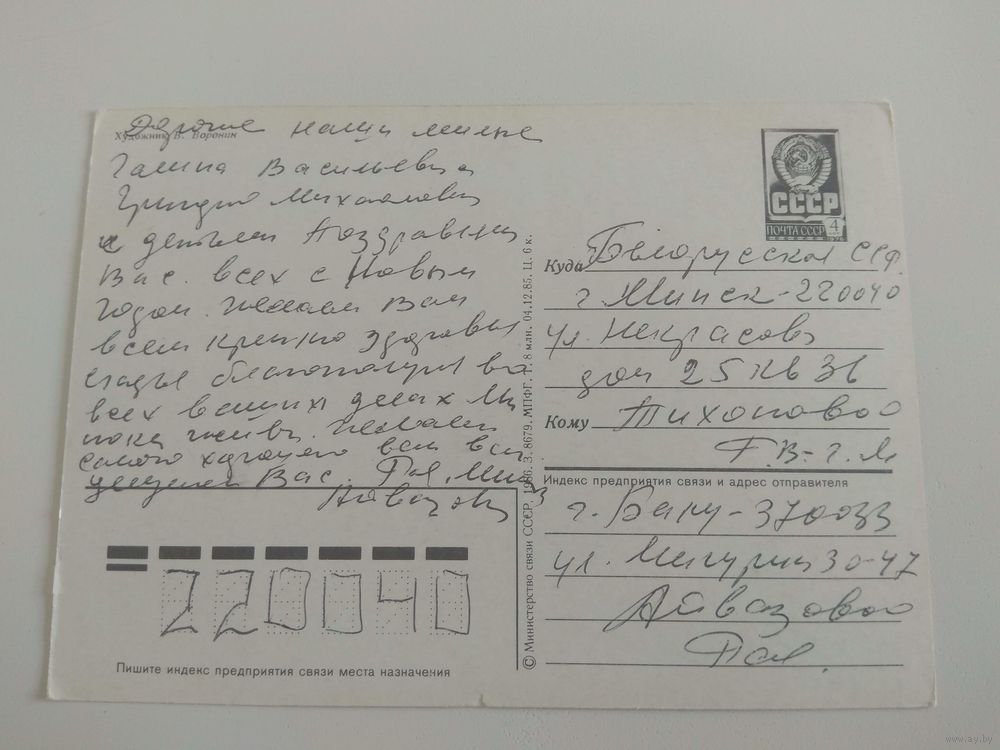 Художник В. Воронин
Дорогие наши милые
Галина Васильевна
Григорий Михайлович
и детьми Поздравляем
Вас. всех с Новым
годом. Желаем Вам
всем крепкого здоровья
счастья благополучия во
всех ваших делах Мы
пока живы. Желаем
самого хорошего всем всем
целуем Вас.
СССР
ПОЧТА СССР 4
Куда Белорусская ССР
г. Минск-220040
ул. Некрасова
дом 25 кв 36
Кому Тихоновой
Г.В-Г.М
Индекс предприятия связи и адрес отправителя
г. Баку-370033
ул. 30-47
Айвазовой
220040
Пишите индекс предприятия связи места назначения
© Министерство связи СССР, 1986. З. 8679. МПФГ. Т. 8 млн. 04.12.85. Ц. 6 к.
www.ay.by